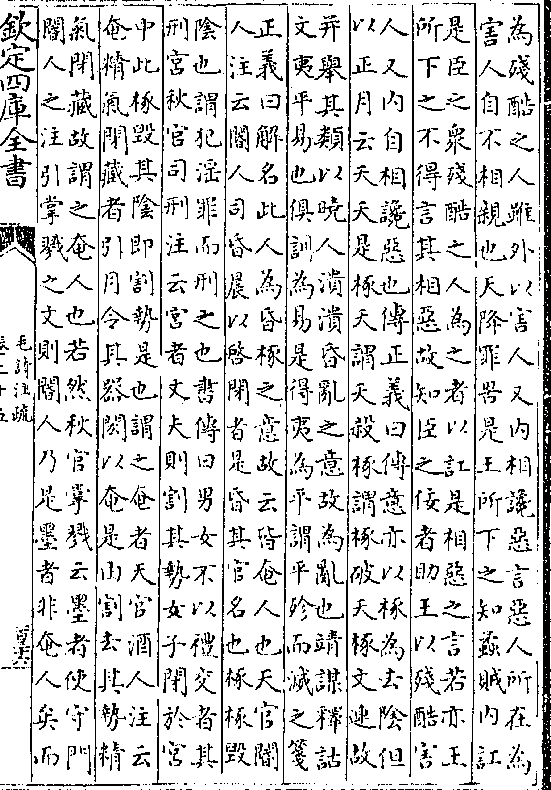 為殘酷之人雖外以害人又内相讒惡言惡人所在為
害人自不相親也天降罪罟是王所下之知蟊賊内訌
是臣之衆殘酷之人為之者以訌是相惡之言若亦王
所下之不得言其相惡故知臣之佞者助王以殘酷害
人又内自相讒惡也傳正義曰傳意亦以椓為去陰但
以正月云天夭是椓夭謂夭殺椓謂椓破夭椓文連故
并舉其類以曉人潰潰昏亂之意故為亂也靖謀釋詁
文夷平易也俱訓為易是得夷為平謂平殄而滅之箋
正義曰解名此人為昏椓之意故云皆奄人也天官閽
人注云閽人司昏晨以啓閉者是昏其官名也椓椓毁
陰也謂犯淫罪而刑之也書傳曰男女不以禮交者其
刑宫秋官司刑注云宫者丈夫則割其勢女子閉於宫
中此椓毁其陰即割勢是也謂之奄者天官酒人注云
奄精氣閉藏者引月令其器閎以奄是由割去其勢精
氣閉藏故謂之奄人也若然秋官掌戮云墨者使守門
閽人之注引掌戮之文則閽人乃是墨者非奄人矣而
欽定四庫全書
毛詩注疏
卷二十五